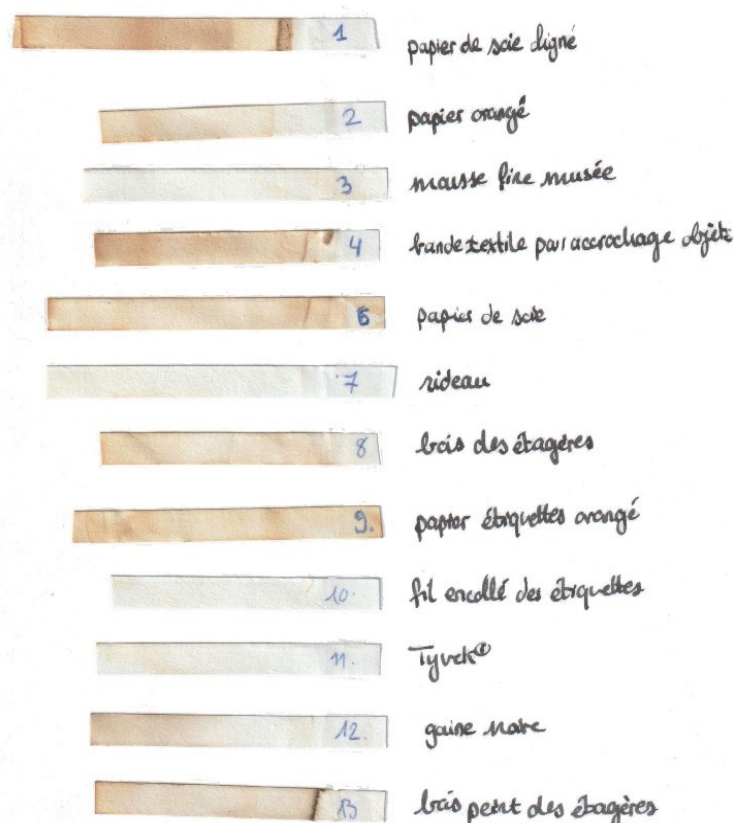 1 papier de soie ligné
2 papier orangé
3 mousse fine musée
4 bande textile pour accrochage objets
5 papier de soie
7 rideau
8 bois des étagères
9. papier étiquettes orangé
10. fil encollé des étiquettes
11. Tyvek®
12. gaine noire
13 bois peint des étagères